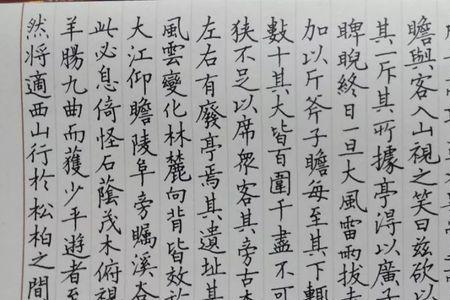 瞻與客入山視之笑曰茲欲以
其一斥其所據亭得以廣
睥睨終日一旦大風雷雨拔去
加以斤斧子瞻每至其下輒
數十其大皆百圍千盡不可
狹不足以席眾客其旁古木
左右有廢亭焉其遺址其
風雲變化林麓向背皆效於
大江仰瞻陵阜旁矚溪谷
此必息倚怪石蔭茂木俯視
羊腸九曲而獲少平遊者至
然将適西山行於松柏之間